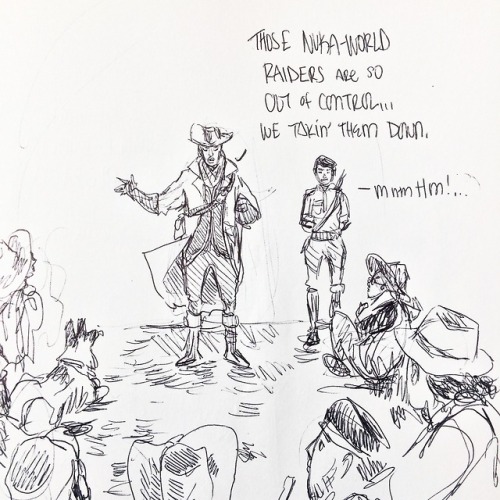 THOSE NUKA-WORLD
RAIDERS ARE SO
OUT of CONTROL...
WE TAKIN' THEM DOWN.
- mmmHm!...